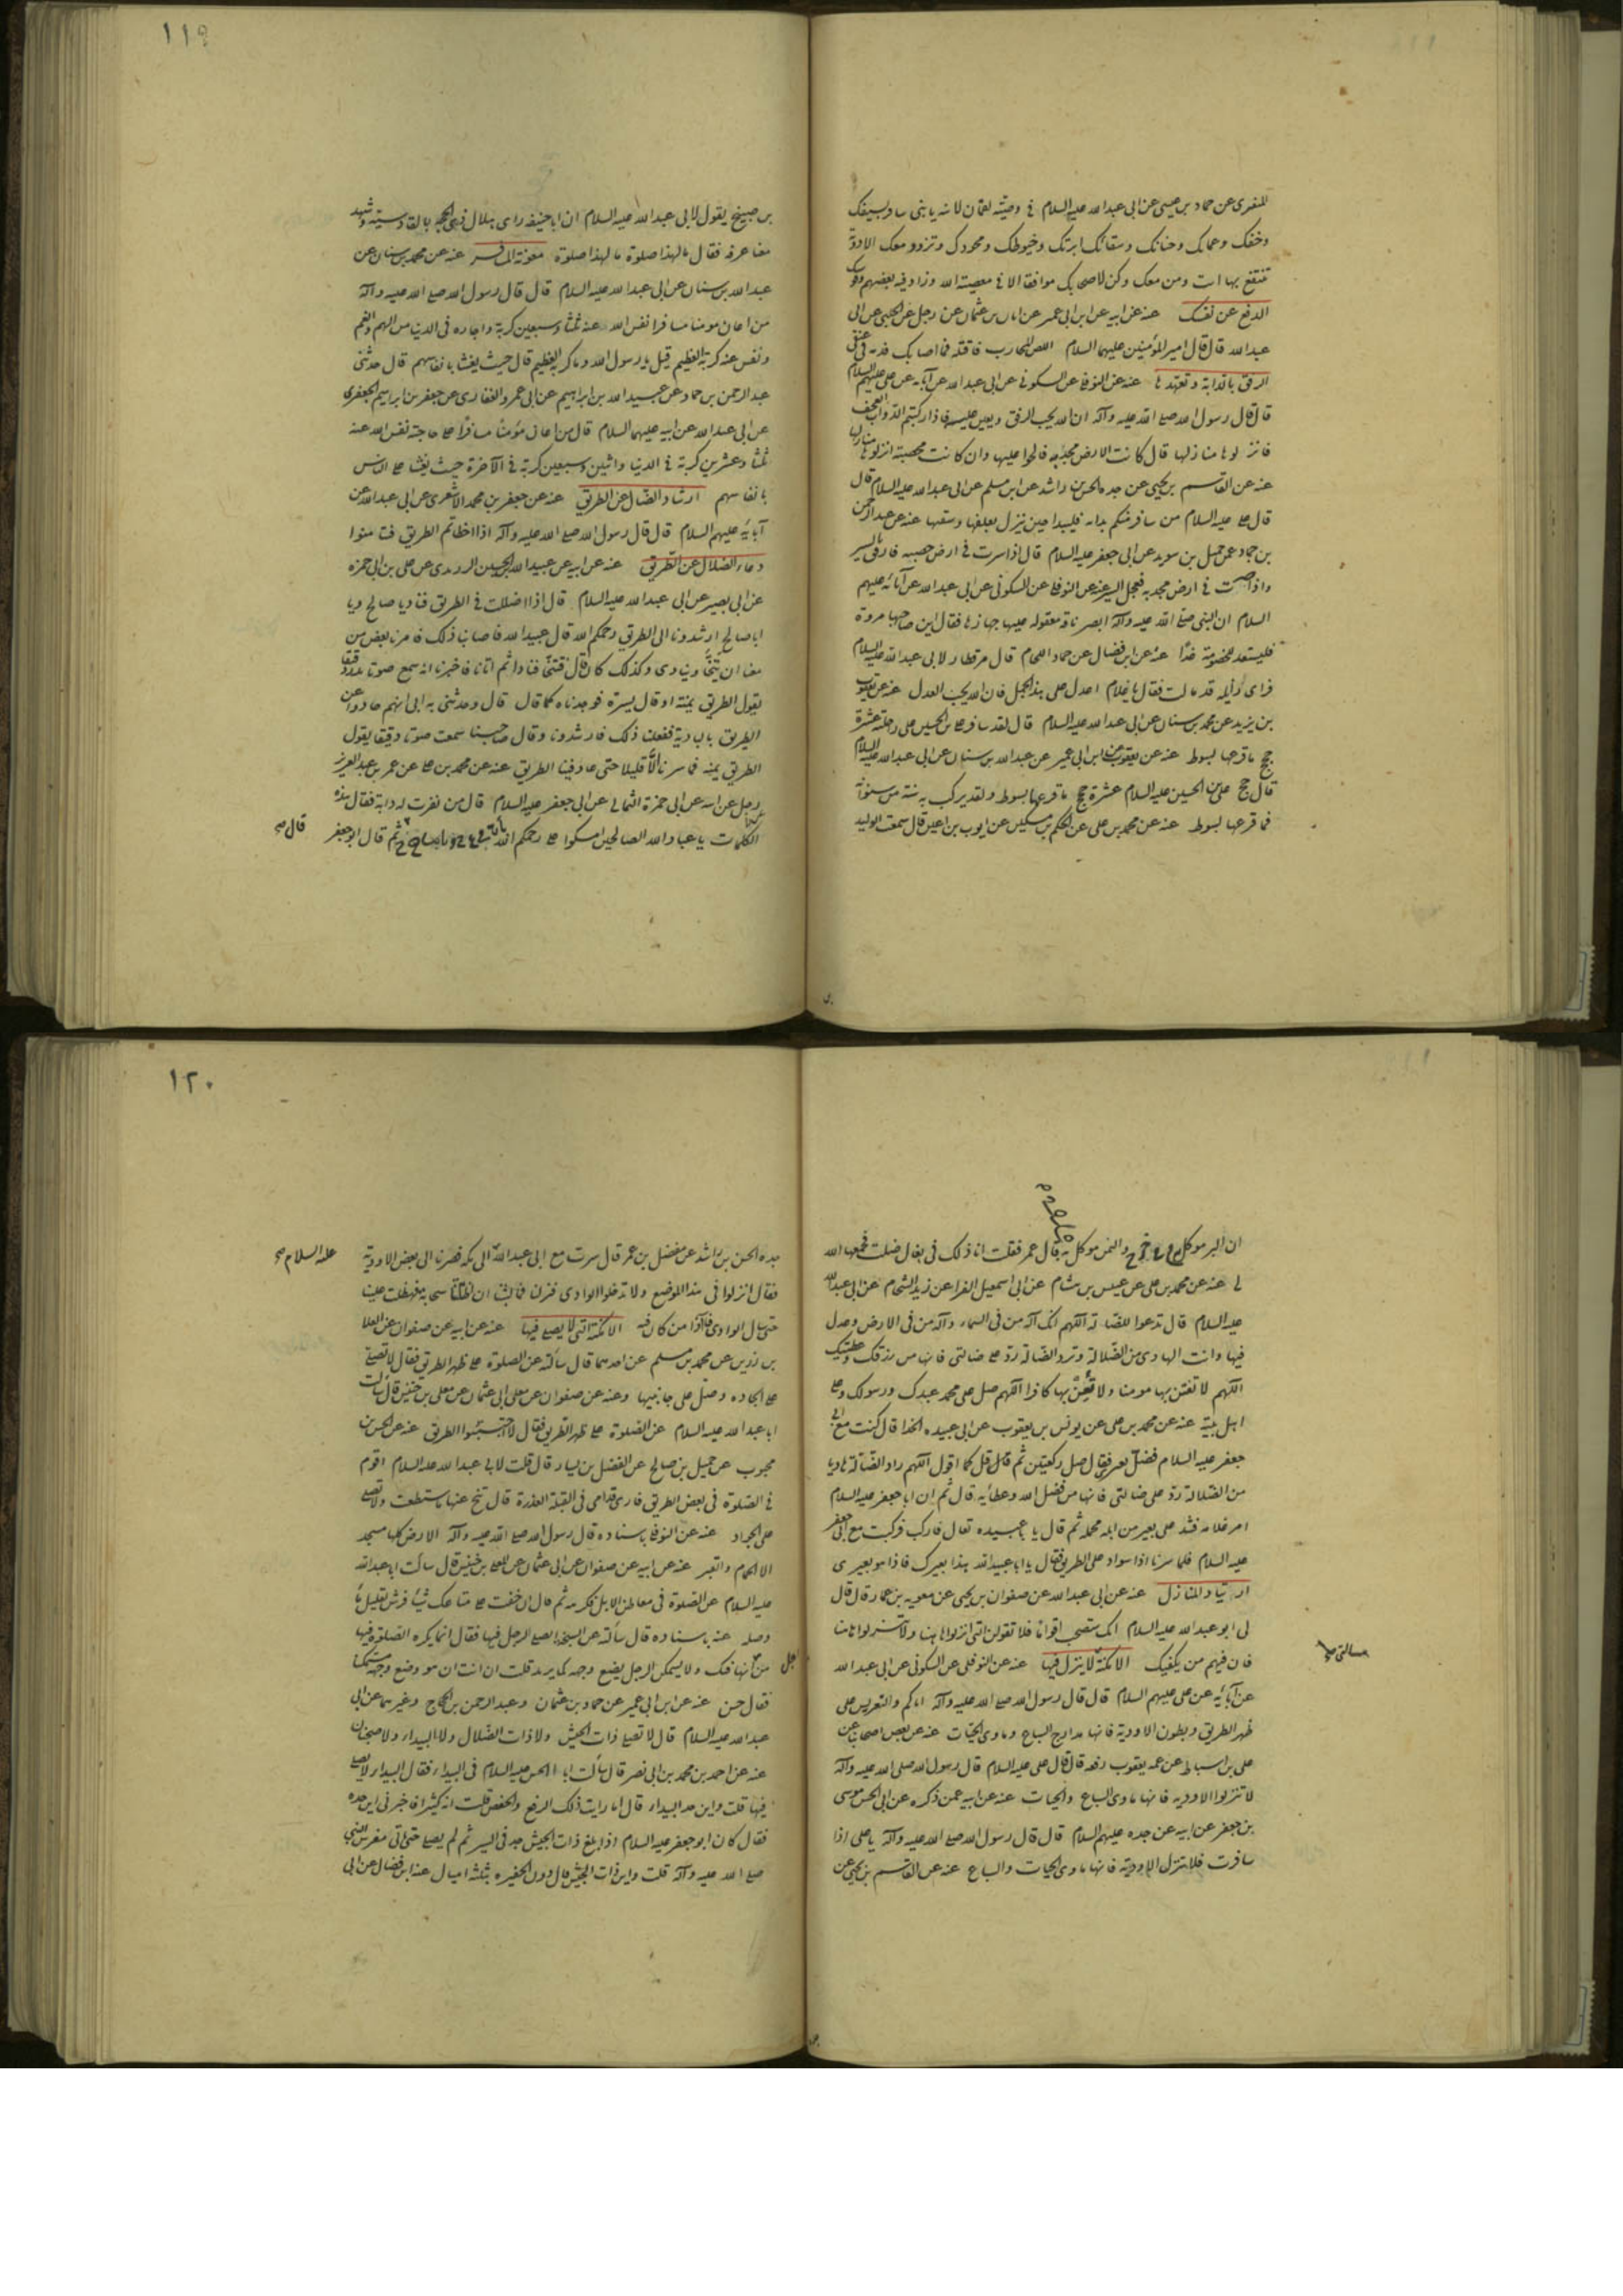 ١١٩
المنقرى عن حماد بن عيسى عن ابى عبد الله عليه السلام فى وصية لقمان لابنه يا بنى سافر بسيفك
وخفك وعمامتك وحبالك وسقائك وابرتك وخيوطك ومخرزك وتزود معك الادوية
تنتفع بها انت ومن معك وكن لاصحابك موافقا الا فى معصية الله وزاد فيه بعضهم وقوسك
الدفع عن نفسك عنه عن ابيه عن ابن ابى عمير عن ابان بن عثمان عن رجل عن الحلبى عن ابى
عبد الله قال قال امير المؤمنين عليهما السلام اللص المحارب فاقتله فما اصابك فدمه فى عنقى
الرفق بالدابة وتعهدها عنه عن النوفلى عن السكونى عن ابى عبد الله عن آبائه عن على عليهم السلام
قال قال رسول الله صلى الله عليه وآله ان الله يحب الرفق ويعين عليه فاذا ركبتم الدواب العجف
فانزلوها منازلها قال كانت الارض مجدبة فالحوا عليها وان كانت مخصبة انزلوها منازلها
عنه عن القاسم بن يحيى عن جده الحسن بن راشد عن ابن مسلم عن ابى عبد الله عليه السلام قال
قال على عليه السلام من سافر منكم بدابة فليبدأ حين ينزل بعلفها وسقيها عنه عن عبد الرحمن
بن حماد عن جميل بن سويد عن ابى جعفر عليه السلام قال اذا سرت فى ارض خصبة فارفق بالسير
واذا سرت فى ارض مجدبة فعجل السير عنه عن النوفلى عن السكونى عن ابى عبد الله عن آبائه عليهم
السلام ان النبى صلى الله عليه وآله ابصر ناقة معقولة عليها جهازها فقال اين صاحبها مروه
فليستعد للخصومة غدا عنه عن ابن فضال عن حماد اللحام قال مر قطار لابى عبد الله عليه السلام
فراى زاملة قد مالت فقال يا غلام اعدل على هذا الجمل فان الله يحب العدل عنه عن يعقوب
بن يزيد عن محمد بن سنان عن ابى عبد الله عليه السلام قال لقد سافر على بن الحسين على راحلة عشرة
حجج ما قرعها بسوط عنه عن يعقوب عن ابن ابى عمير عن عبد الله بن سنان عن ابى عبد الله عليه السلام
قال حج على بن الحسين عليه السلام عشرة حجج ما قرعها بسوط ولقد بركت به سنة من سنواته
فما قرعها بسوط عنه عن محمد بن على عن الحكم بن مسكين عن ايوب بن اعين قال سمعت الوليد
بن صبيح يقول لابى عبد الله عليه السلام ان ابا حنيفة راى هلال ذى الحجة بالقادسية وشهد
معنا عرفة فقال ما لهذا صلوة ما لهذا صلوة معونة المسافر عنه عن محمد بن سنان عن
عبد الله بن سنان عن ابى عبد الله عليه السلام قال قال رسول الله صلى الله عليه وآله
من اعان مومنا مسافرا نفس الله عنه ثلثا وسبعين كربة واجاره فى الدنيا من الهم والغم
ونفس عنه كربه العظيم قيل يا رسول الله وما كربه العظيم قال حيث يغشى بانفاسهم قال حدثنى
عبد الرحمن بن حماد عن عبيد الله بن ابراهيم عن ابى عمرو الغفارى عن جعفر بن ابراهيم الجعفرى
عن ابى عبد الله عن ابيه عليهما السلام قال من اعان مؤمنا مسافرا على حاجة نفس الله عنه
ثلثا وعشرين كربة فى الدنيا واثنين وسبعين كربة فى الآخرة حيث يغشى على الناس
بانفاسهم ارشاد الضال عن الطريق عنه عن جعفر بن محمد الاشعرى عن ابى عبد الله عن
آبائه عليهم السلام قال قال رسول الله صلى الله عليه وآله اذا اخطاتم الطريق فتيامنوا
دعاء الضلال عن الطريق عنه عن ابيه عن عبيد الله بن الحسين الزرندى عن على بن ابى حمزه
عن ابى بصير عن ابى عبد الله عليه السلام قال اذا ضللت فى الطريق فناد يا صالح ويا
ابا صالح ارشدونا الى الطريق رحمكم الله قال عبيد الله فاصابنا ذلك فامرنا بعض من
معنا ان يتنحى وينادى كذلك قال فتنحى فنادا ثم اتانا فاخبرنا انه سمع صوتا دقيقا
يقول الطريق يمنة او قال يسرة فوجدناه كما قال قال وحدثنى به ابى انهم حادوا عن
الطريق بالبادية ففعلنا ذلك فارشدونا وقال صاحبنا سمعت صوتا دقيقا يقول
الطريق يمنه فما سرنا الا قليلا حتى عارضنا الطريق عنه عن محمد بن على عن عمر بن عبد العزيز
رجل عن ابيه عن ابى حمزة الثمالى عن ابى جعفر عليه السلام قال من نفرت له دابة فقال هذه
الكلمات يا عباد الله الصالحين امسكوا على رحمكم الله ثم قال ابو جعفر
قال صح
١٢٠
ان البر موكل والبحر موكل به قال عمر فقلت انا ذلك فى بغال ضلت فجمعها الله
لى عنه عن محمد بن على عن عبيس بن هشام عن ابى اسمعيل الفرا عن زيد الشحام عن ابى عبد الله
عليه السلام قال تدعوا للضالة اللهم انك آله من فى السماء وآله من فى الارض وعدل
فيهما وانت الهادى من الضلالة وترد الضالة رد على ضالتى فانها من رزقك وعطيتك
اللهم لا تفتن بها مومنا ولا تغن بها كافرا اللهم صل على محمد عبدك ورسولك وعلى
اهل بيته عنه عن محمد بن على عن يونس بن يعقوب عن ابى عبيده الحذا قال كنت مع ابى
جعفر عليه السلام فضل بعيرى فقال صل ركعتين ثم قال قل كما اقول اللهم راد الضالة هاديا
من الضلالة رد على ضالتى فانها من فضل الله وعطائه قال ثم ان ابا جعفر عليه السلام
امر غلامه فشد على بعير من ابله محمله ثم قال يا با عبيده تعال فاركب فركبت مع ابى جعفر
عليه السلام فلما سرنا اذا سواد على الطريق فقال يا ابا عبيدالله هذا بعيرك فاذا هو بعيرى
ارتياد المنازل عنه عن ابى عبد الله عن صفوان بن يحيى عن معويه بن عمار قال قال
لى ابو عبد الله عليه السلام انك ستصحب اقواما فلا تقولن انزلوا هاهنا ولا تنزلوا هاهنا
فان فيهم من يكفيك الامكنة لا ينزل فيها عنه عن النوفلى عن السكونى عن ابى عبد الله
عن آبائه عن على عليهم السلام قال قال رسول الله صلى الله عليه وآله اياكم والتعريس على
ظهر الطريق وبطون الاودية فانها مدارج السباع وماوى الحيات عنه عن بعض اصحابنا عن
على بن اسباط عن عمه يعقوب رفعه قال قال على عليه السلام قال رسول الله صلى الله عليه وآله
لا تنزلوا الاوديه فانها ماوى السباع والحيات عنه عن ابيه عمن ذكره عن ابى الحسن موسى
بن جعفر عن ابيه عن جده عليهم السلام قال قال رسول الله صلى الله عليه وآله يا على اذا
سافرت فلا تنزل الاودية فانها ماوى الحيات والسباع عنه عن القاسم بن يحيى عن
جده الحسن بن راشد عن مفضل بن عمر قال سرت مع ابى عبد الله الى مكة فصرنا الى بعض الاودية
عليه السلام صح
فقال انزلوا فى هذا الموضع ولا تدخلوا الوادى فنزلنا فما لبثنا ان اظلتنا سحابة فهطلت علينا
حتى سال الوادى فآذا من كان فيه الامكنة التى لا يصلى فيها عنه عن ابيه عن صفوان عن العلا
بن رزين عن محمد بن مسلم عن احدهما قال سالته عن الصلوة على ظهر الطريق فقال لا تصلى
على الجاده وصل على جانبيها وعنه عن صفوان عن معلى ابى عثمان عن معلى بن خنيس قال سالت
ابا عبد الله عليه السلام عن الصلوة على ظهر الطريق فقال لا اجتنبوا الطريق عنه عن الحسن بن
محبوب عن جميل بن صالح عن الفضل بن يسار قال قلت لابى عبد الله عليه السلام اقوم
فى الصلوة فى بعض الطريق فارى قدامى فى القبلة العذرة قال تنح عنها ما استطعت ولا تصلى
على الجواد عنه عن النوفلى باسناده قال رسول الله صلى الله عليه وآله الارض كلها مسجد
الا الحمام والقبر عنه عن ابيه عن صفوان عن ابى عثمان عن المعلى بن خنيس قال سالت ابا عبد الله
عليه السلام عن الصلوة فى معاطن الابل فكرهه ثم قال ان خفت على متاعك شيئا فرش بقليل ماء
وصل عنه باسناده قال سالته عن السبخة ايصلى الرجل فيها فقال انما يكره الصلوة فيها
من انها فتك ولا يتمكن الرجل يضع وجهه كما يريد قلت ان انت ان هو وضع وجهه متمكنا
فقال حسن عنه عن ابن ابى عمير عن حماد بن عثمان وعبد الرحمن بن الحجاج وغيرهما عن ابى
عبد الله عليه السلام قال لا تصلى ذات الجيش ولا ذات الضلال ولا البيداء ولا ضجنان
عنه عن احمد بن محمد بن ابى نصر قال سالت ابا الحسن عليه السلام فى البيداء فقال البيداء لا يصلى
فيها قلت واين حد البيداء قال اما رايت ذلك الرفع والخفض قلت انه كثير فاخبرنى اين حده
فقال كان ابو جعفر عليه السلام اذا بلغ ذات الجيش جد فى السير ثم لم يصلى حتى اتى معرس النبى
صلى الله عليه وآله قلت واين ذات الجيش قال دون الحفيره بثلثة اميال عنه ابن فضال عن ابى